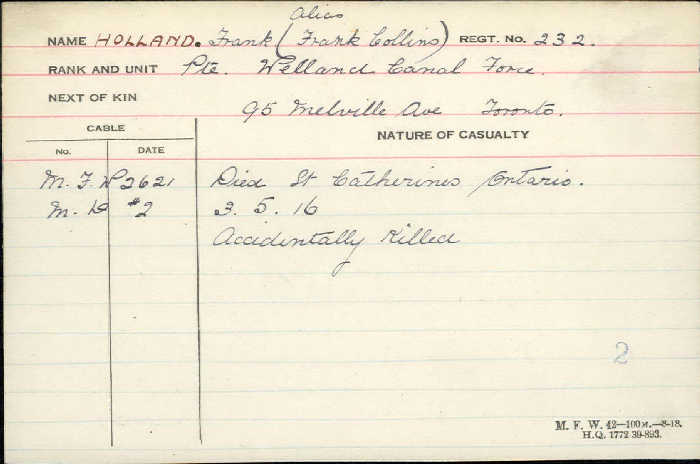 Alias
NAME HOLLAND. Frank (Frank Collins) REGT. No. 232.
RANK AND UNIT Pte. Welland Canal Force.
NEXT OF KIN
95 Melville Ave Toronto.
CABLE
NATURE OF CASUALTY
No. DATE
M. F. W 2621 Died St Catherines Ontario.
M. D #2 3. 5. 16
Accidentally Killed
2
M. F. W. 42—100 M.—8-18.
H.Q. 1772-39-893.